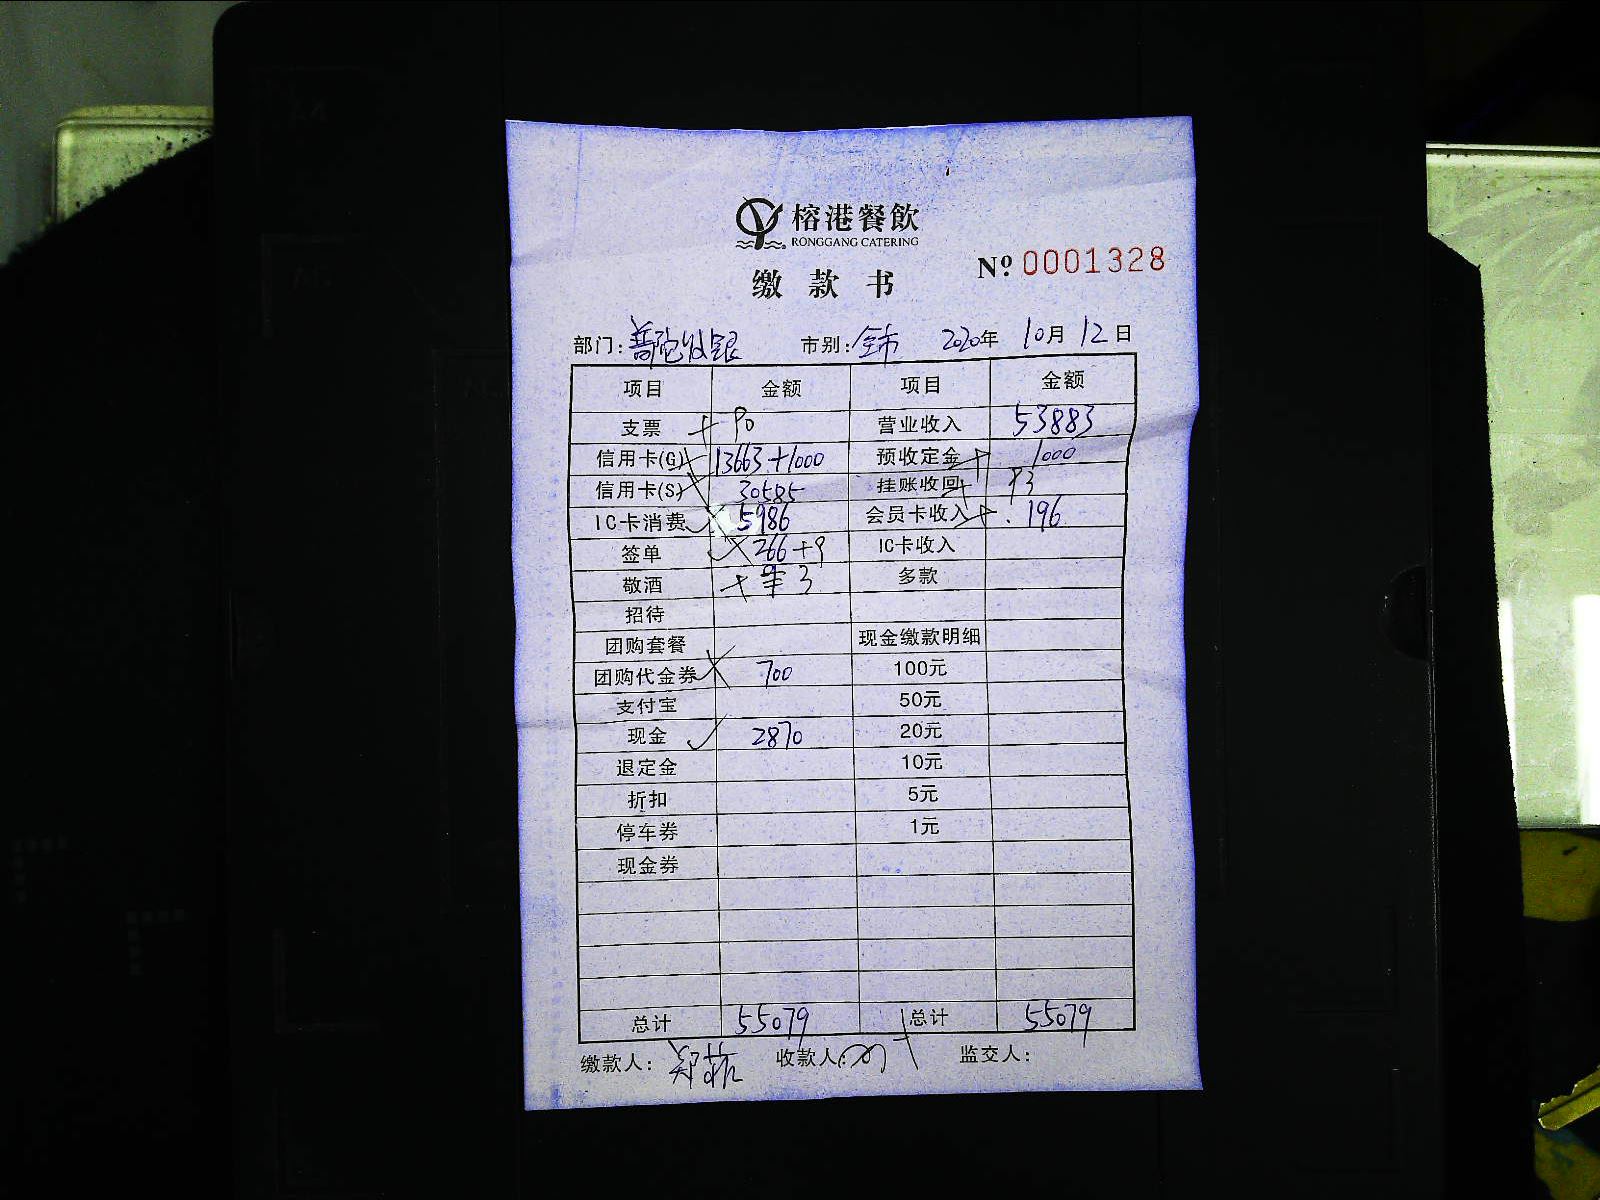 榕港餐飲
RONGGANG CATERING
缴款书
№ 0001328
部门: 普陀收银 市别: 全市 2020年 10月 12日
项目 金额 项目 金额
支票 90 营业收入 53883
信用卡(G) 13663+1000 预收定金 1000
信用卡(S) 30585 挂账收回
IC卡消费 5986 会员卡收入 196
签单 266+9 IC卡收入
敬酒 3 多款
招待
团购套餐 现金缴款明细
团购代金券 700 100元
支付宝 50元
现金 2870 20元
退定金 10元
折扣 5元
停车券 1元
现金券
总计 55079 总计 55079
缴款人: 郑 收款人: 监交人: